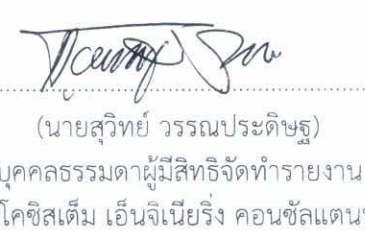 (นายสุวิทย์ วรรณประดิษฐ)
บุคคลธรรมดาผู้มีสิทธิจัดทำรายงาน
โคซิสเต็ม เอ็นจิเนียริ่ง คอนซัลแตนท